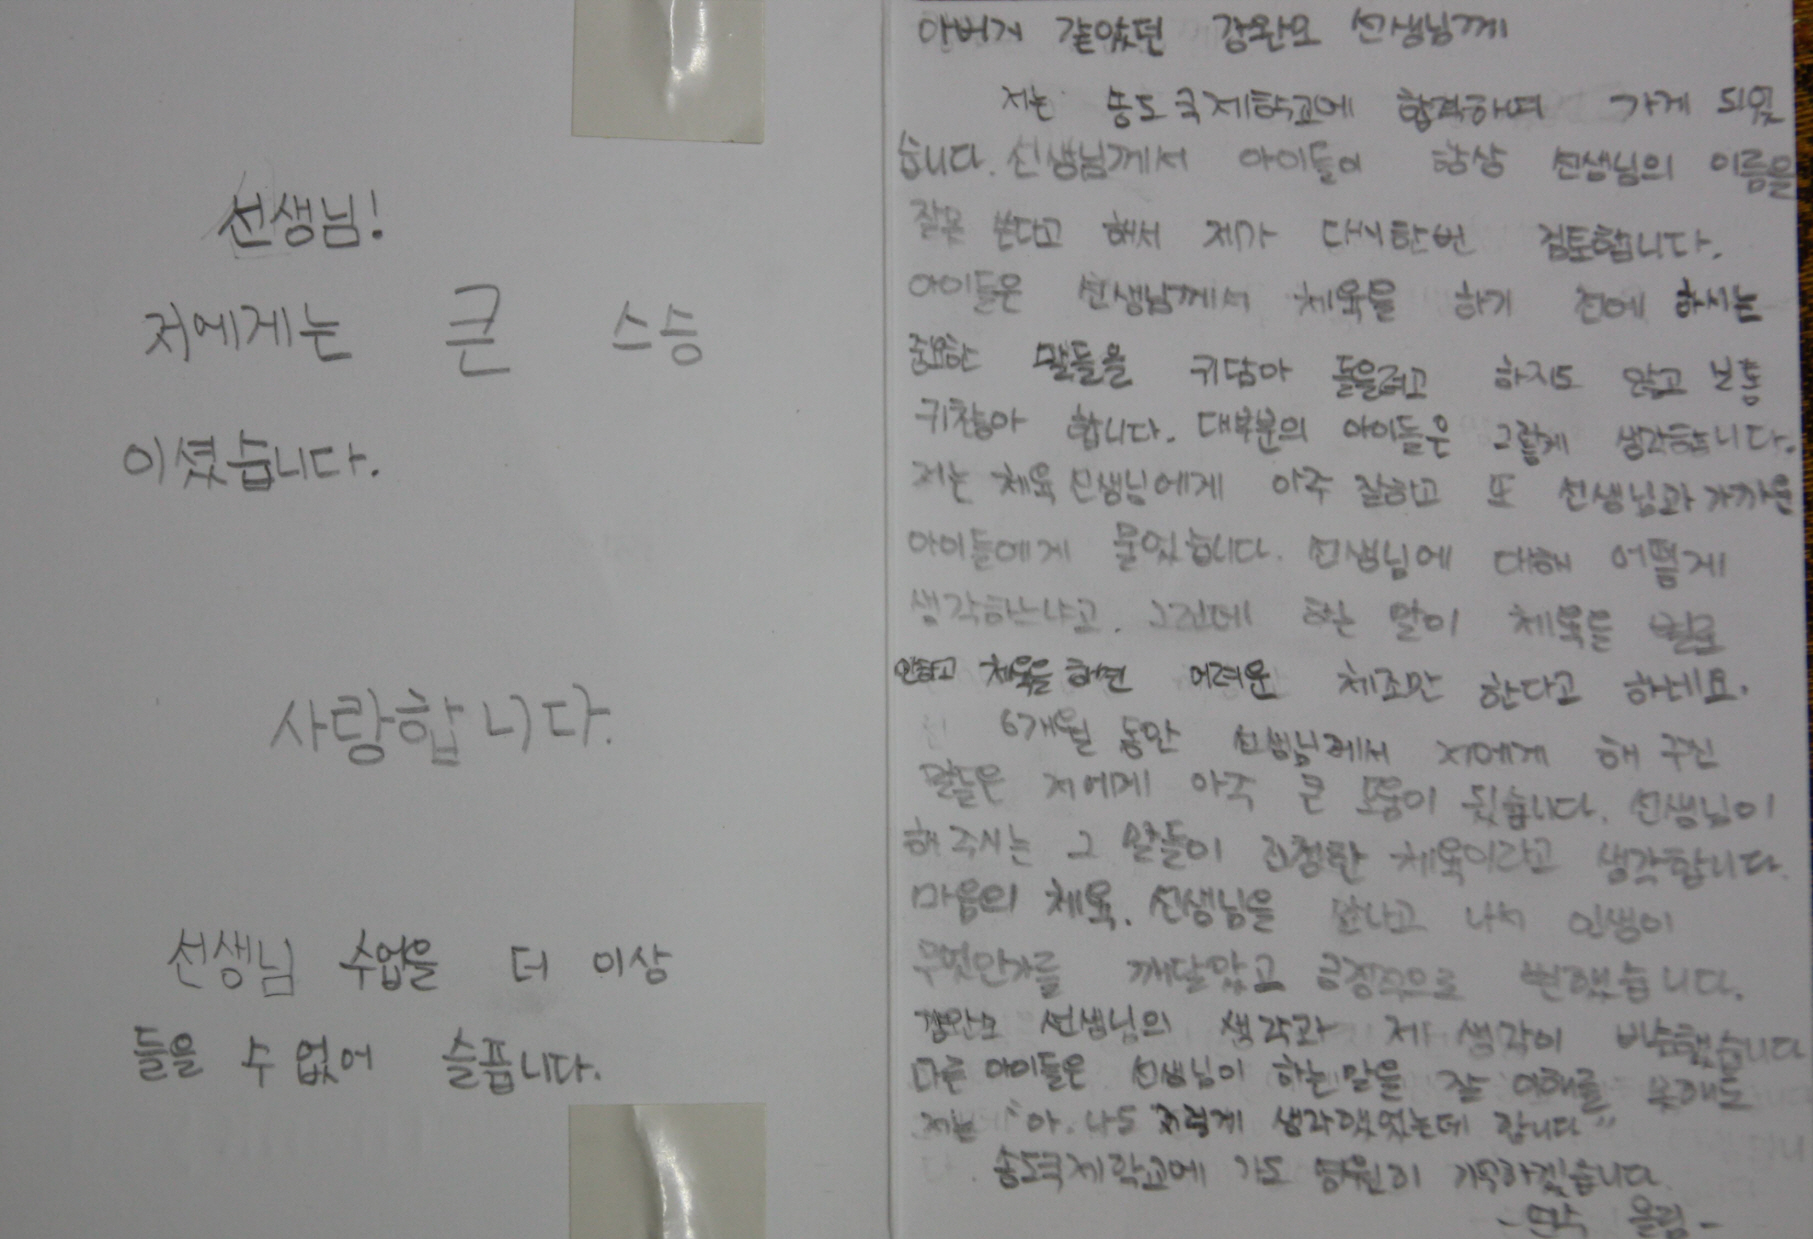 선생님!
저에게는 큰 스승
이셨습니다.
사랑합니다.
선생님 수업을 더 이상
들을 수 없어 슬픕니다.
아버지 같았던 강완모 선생님께
저는 송도국제학교에 합격하며 가게 되었
습니다. 선생님께서 아이들이 항상 선생님의 이름을
잘못 쓴다고 해서 제가 다시한번 검토합니다.
아이들은 선생님께서 체육을 하기 전에 하시는
중요한 말들을 귀담아 들을려고 하지도 않고 보통
귀찮아 합니다. 대부분의 아이들은 그렇게 생각합니다.
저는 체육 선생님에게 아주 잘하고 또 선생님과 가까운
아이들에게 물었습니다. 선생님에 대해 어떻게
생각하느냐고. 그런데 하는 말이 체육을 별로
안하고 체육을 하면 어려운 체조만 한다고 하데요.
6개월 동안 선생님께서 저에게 해 주신
말들은 저에게 아주 큰 도움이 됬습니다. 선생님이
해 주시는 그 말들이 진정한 체육이라고 생각합니다.
마음의 체육. 선생님을 만나고 나서 인생이
무엇인가를 깨달았고 긍정적으로 변했습니다.
선생님의 생각과 제 생각이 비슷했습니다
다른 아이들은 선생님이 하는 말을 잘 이해를 못해도
저는 "아. 나도 저렇게 생각했었는데 합니다"
송도국제학교에 가도 영원히 기억하겠습니다.
- 올림 -